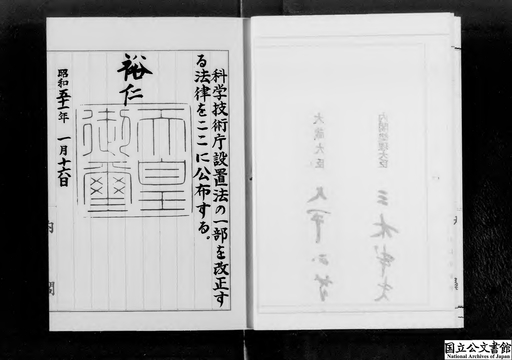 科学技術庁設置法の一部を改正す
る法律をここに公布する。
裕仁
天皇
御璽
昭和五十一年 一月十六日
内閣
内閣総理大臣
三木武夫
大蔵大臣
大平正芳
国立公文書館
National Archives of Japan